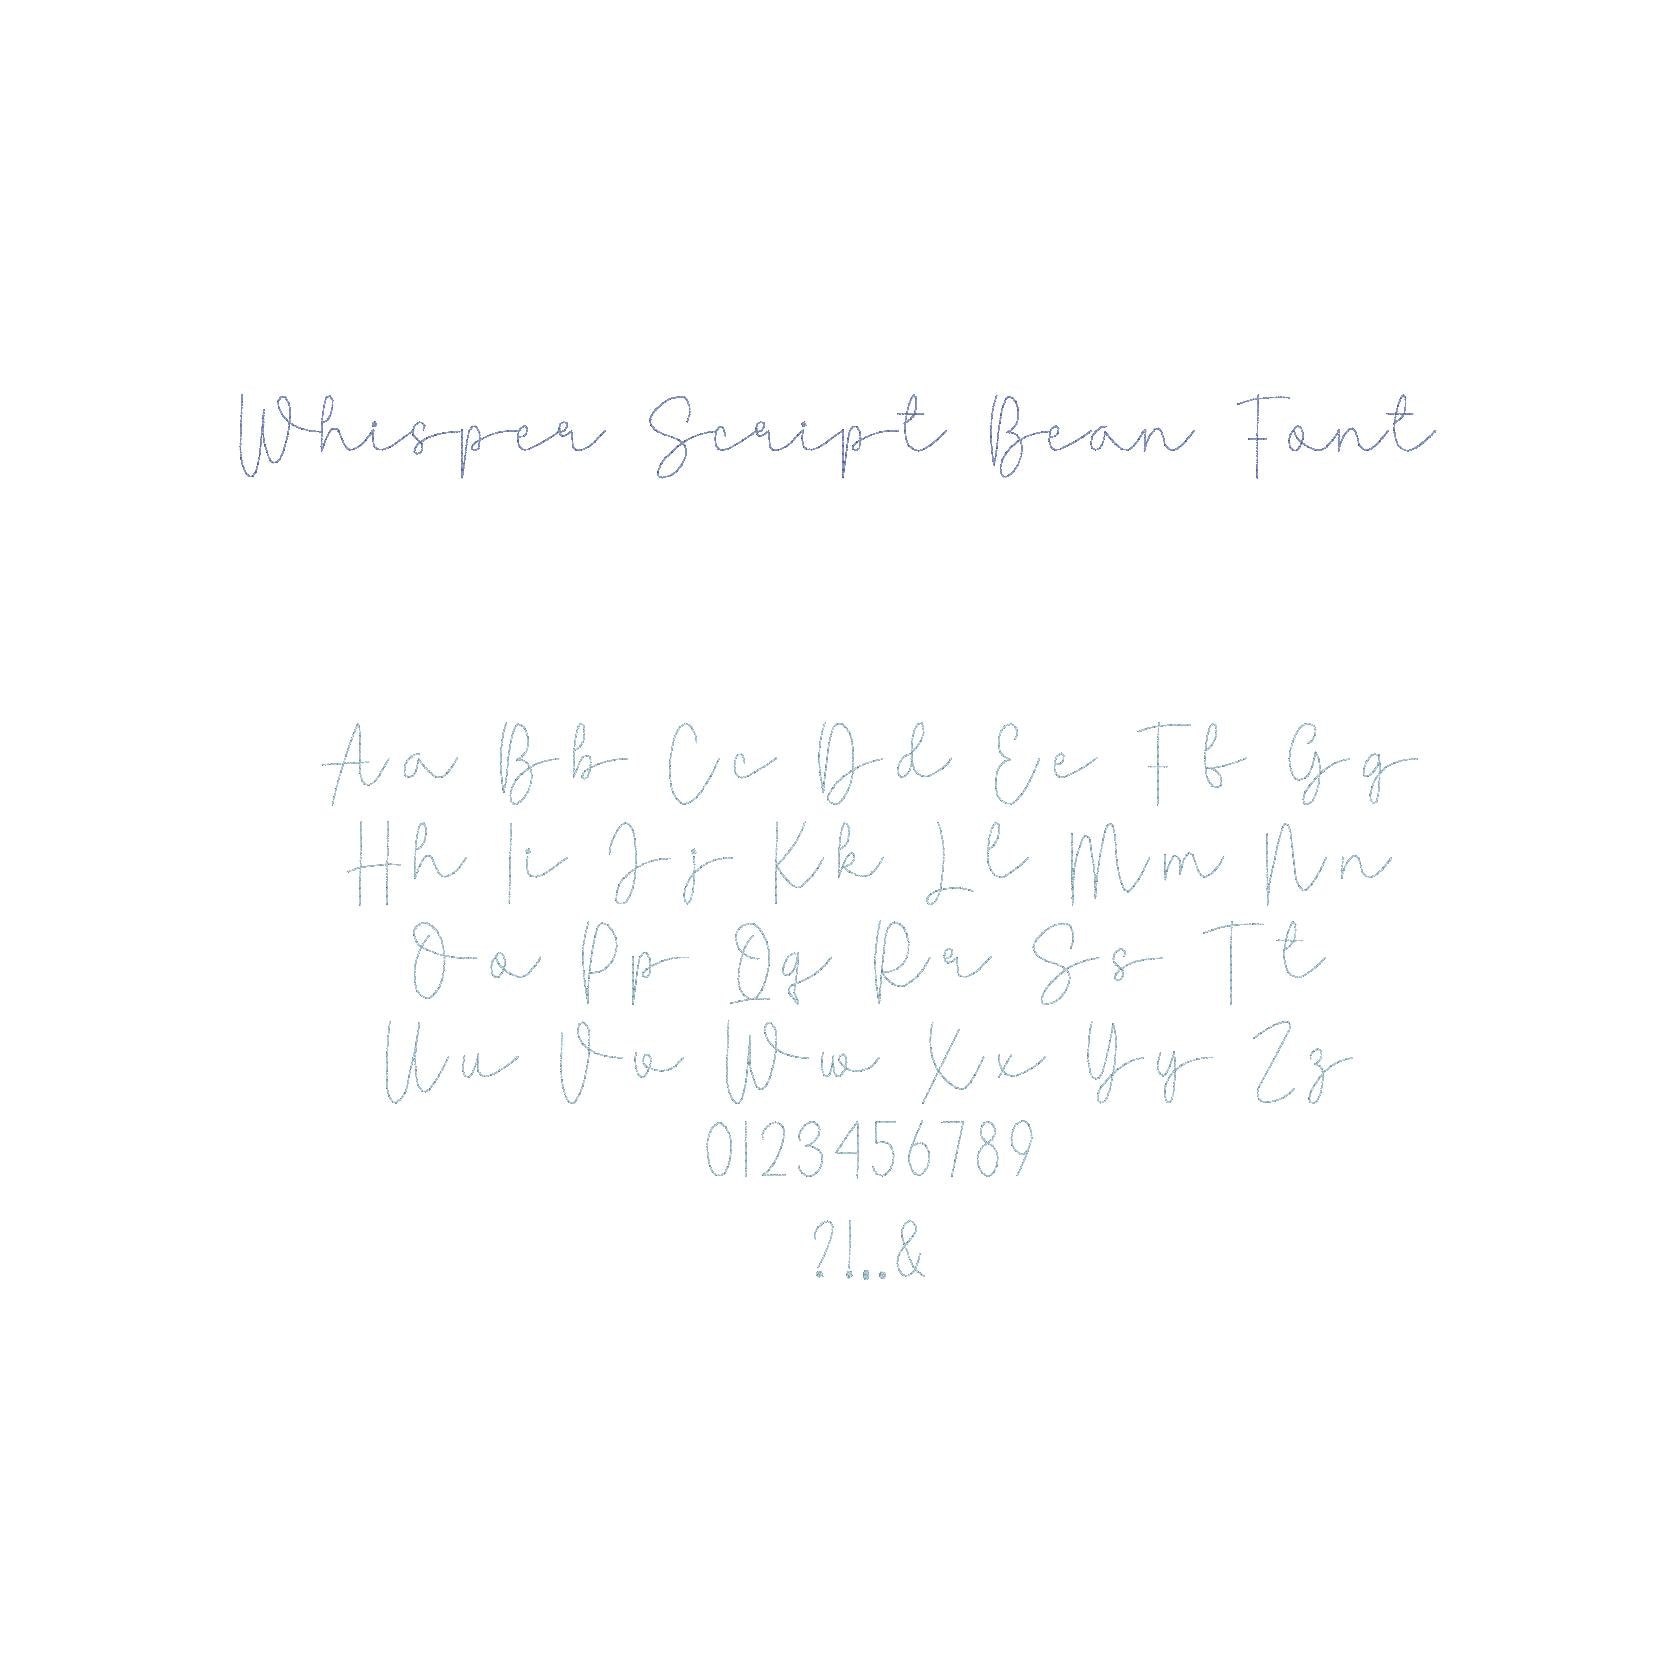 Whisper Script Bean Font
Aa Bb Cc Dd Ee Ff Gg
Hh Ii Jj Kk Ll Mm Nn
Oo Pp Qq Rr Ss Tt
Uu Vv Ww Xx Yy Zz
0123456789
?!..&